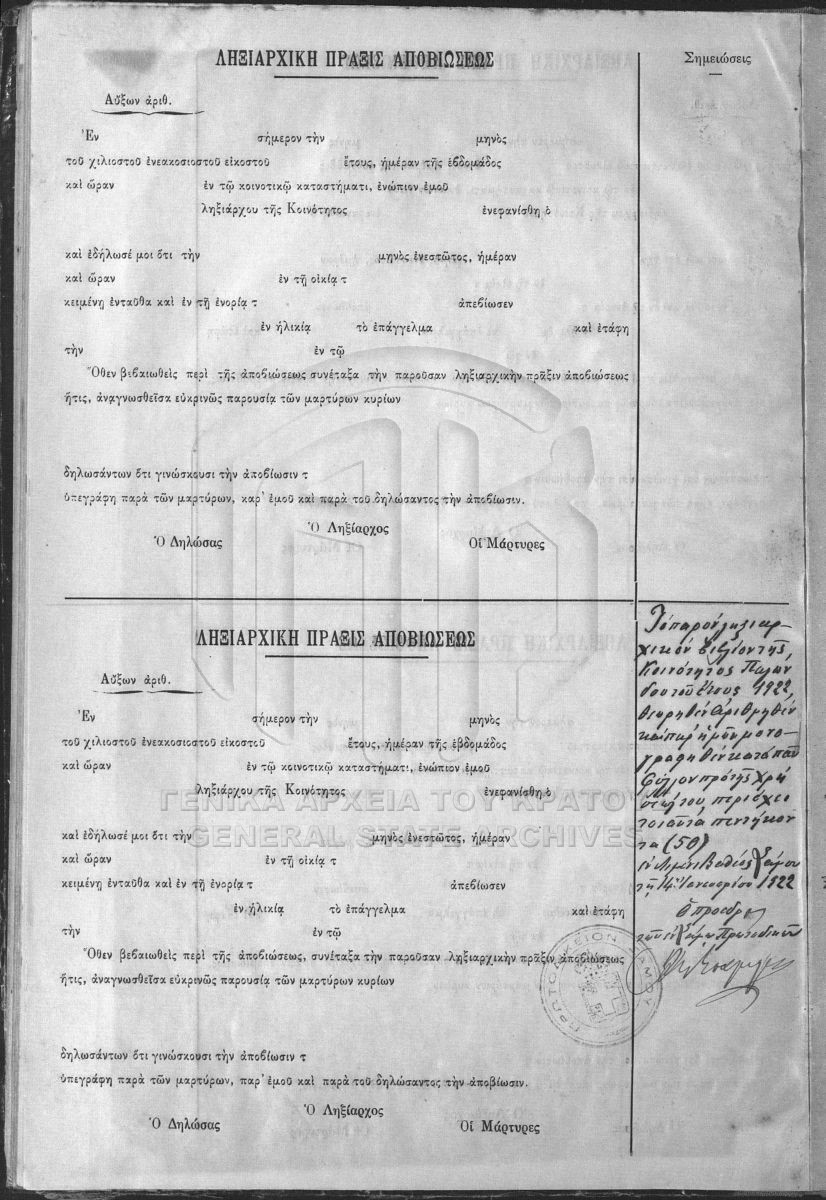 ΛΗΞΙΑΡΧΙΚΗ ΠΡΑΞΙΣ ΑΠΟΒΙΩΣΕΩΣ
Σημειώσεις
Αὔξων ἀριθ.
Ἐν σήμερον τὴν μηνὸς
τοῦ χιλιοστοῦ ἐνεακοσιοστοῦ εἰκοστοῦ ἔτους, ἡμέραν τῆς ἑβδομάδος
καὶ ὥραν ἐν τῷ κοινοτικῷ καταστήματι, ἐνώπιον ἐμοῦ
ληξιάρχου τῆς Κοινότητος ἐνεφανίσθη ὁ
καὶ ἐδήλωσέ μοι ὅτι τὴν μηνὸς ἐνεστῶτος, ἡμέραν
καὶ ὥραν ἐν τῇ οἰκίᾳ τ
κειμένῃ ἐνταῦθα καὶ ἐν τῇ ἐνορίᾳ τ ἀπεβίωσεν
ἐν ἡλικίᾳ τὸ ἐπάγγελμα καὶ ἐτάφη
τὴν ἐν τῷ
Ὅθεν βεβαιωθεὶς περὶ τῆς ἀποβιώσεως συνέταξα τὴν παροῦσαν ληξιαρχικὴν πρᾶξιν ἀποβιώσεως
ἥτις, ἀναγνωσθεῖσα εὐκρινῶς παρουσίᾳ τῶν μαρτύρων κυρίων
δηλωσάντων ὅτι γινώσκουσι τὴν ἀποβίωσιν τ
ὑπεγράφη παρὰ τῶν μαρτύρων, παρ' ἐμοῦ καὶ παρὰ τοῦ δηλώσαντος τὴν ἀποβίωσιν.
Ὁ Ληξίαρχος
Ὁ Δηλώσας Οἱ Μάρτυρες
ΛΗΞΙΑΡΧΙΚΗ ΠΡΑΞΙΣ ΑΠΟΒΙΩΣΕΩΣ
Αὔξων ἀριθ.
Ἐν σήμερον τὴν μηνὸς
τοῦ χιλιοστοῦ ἐνεακοσιοστοῦ εἰκοστοῦ ἔτους, ἡμέραν τῆς ἑβδομάδος
καὶ ὥραν ἐν τῷ κοινοτικῷ καταστήματι, ἐνώπιον ἐμοῦ
ληξιάρχου τῆς Κοινότητος ἐνεφανίσθη ὁ
καὶ ἐδήλωσέ μοι ὅτι τὴν μηνὸς ἐνεστῶτος, ἡμέραν
καὶ ὥραν ἐν τῇ οἰκίᾳ τ
κειμένῃ ἐνταῦθα καὶ ἐν τῇ ἐνορίᾳ τ ἀπεβίωσεν
ἐν ἡλικίᾳ τὸ ἐπάγγελμα καὶ ἐτάφη
τὴν ἐν τῷ
Ὅθεν βεβαιωθεὶς περὶ τῆς ἀποβιώσεως, συνέταξα τὴν παροῦσαν ληξιαρχικὴν πρᾶξιν ἀποβιώσεως
ἥτις, ἀναγνωσθεῖσα εὐκρινῶς παρουσίᾳ τῶν μαρτύρων κυρίων
δηλωσάντων ὅτι γινώσκουσι τὴν ἀποβίωσιν τ
ὑπεγράφη παρὰ τῶν μαρτύρων, παρ' ἐμοῦ καὶ παρὰ τοῦ δηλώσαντος τὴν ἀποβίωσιν.
Ὁ Ληξίαρχος
Ὁ Δηλώσας Οἱ Μάρτυρες
Τὸ παρὸν ληξιαρ-
χικὸν βιβλίον τῆς
Κοινότητος
δου τοῦ ἔτους 1922,
θεωρηθὲν ἀριθμηθὲν
καὶ παρ' ἡμῶν μονο-
γραφηθὲν κατὰ πᾶν
φύλλον πρὸ τῆς χρή
σεώς του, περιέχει
τοιαῦτα πεντήκον
τα (50)
ἐν Λιμένι Βαθέος Σάμου
τῇ 14 Ἰανουαρίου 1922
ὁ πρόεδρος
τῶν ἐν Σάμῳ Πρωτοδικῶν
ΠΡΩΤΟΔΙΚΕΙΟΝ ΣΑΜΟΥ
ΓΕΝΙΚΑ ΑΡΧΕΙΑ ΤΟΥ ΚΡΑΤΟΥΣ
GENERAL STATE ARCHIVES